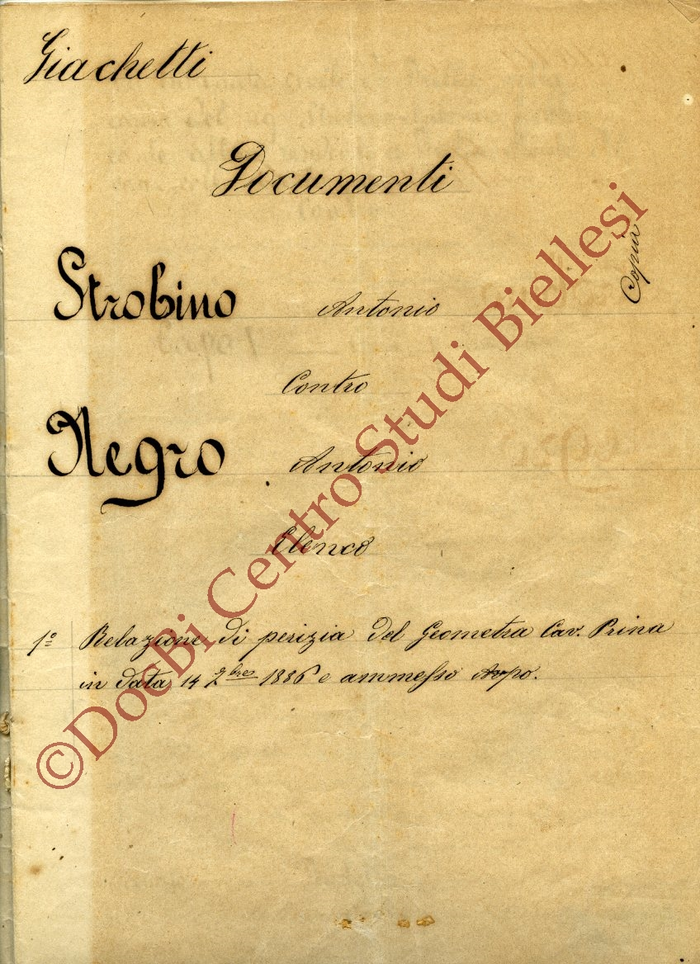 Giachetti
Documenti
Copia
Strobino Antonio
Contro
Negro Antonio
Elenco
1º Relazione di perizia del Geometra Cav. Prina
in data 14 9bre 1886 e ammesso
©DocBi Centro Studi Biellesi